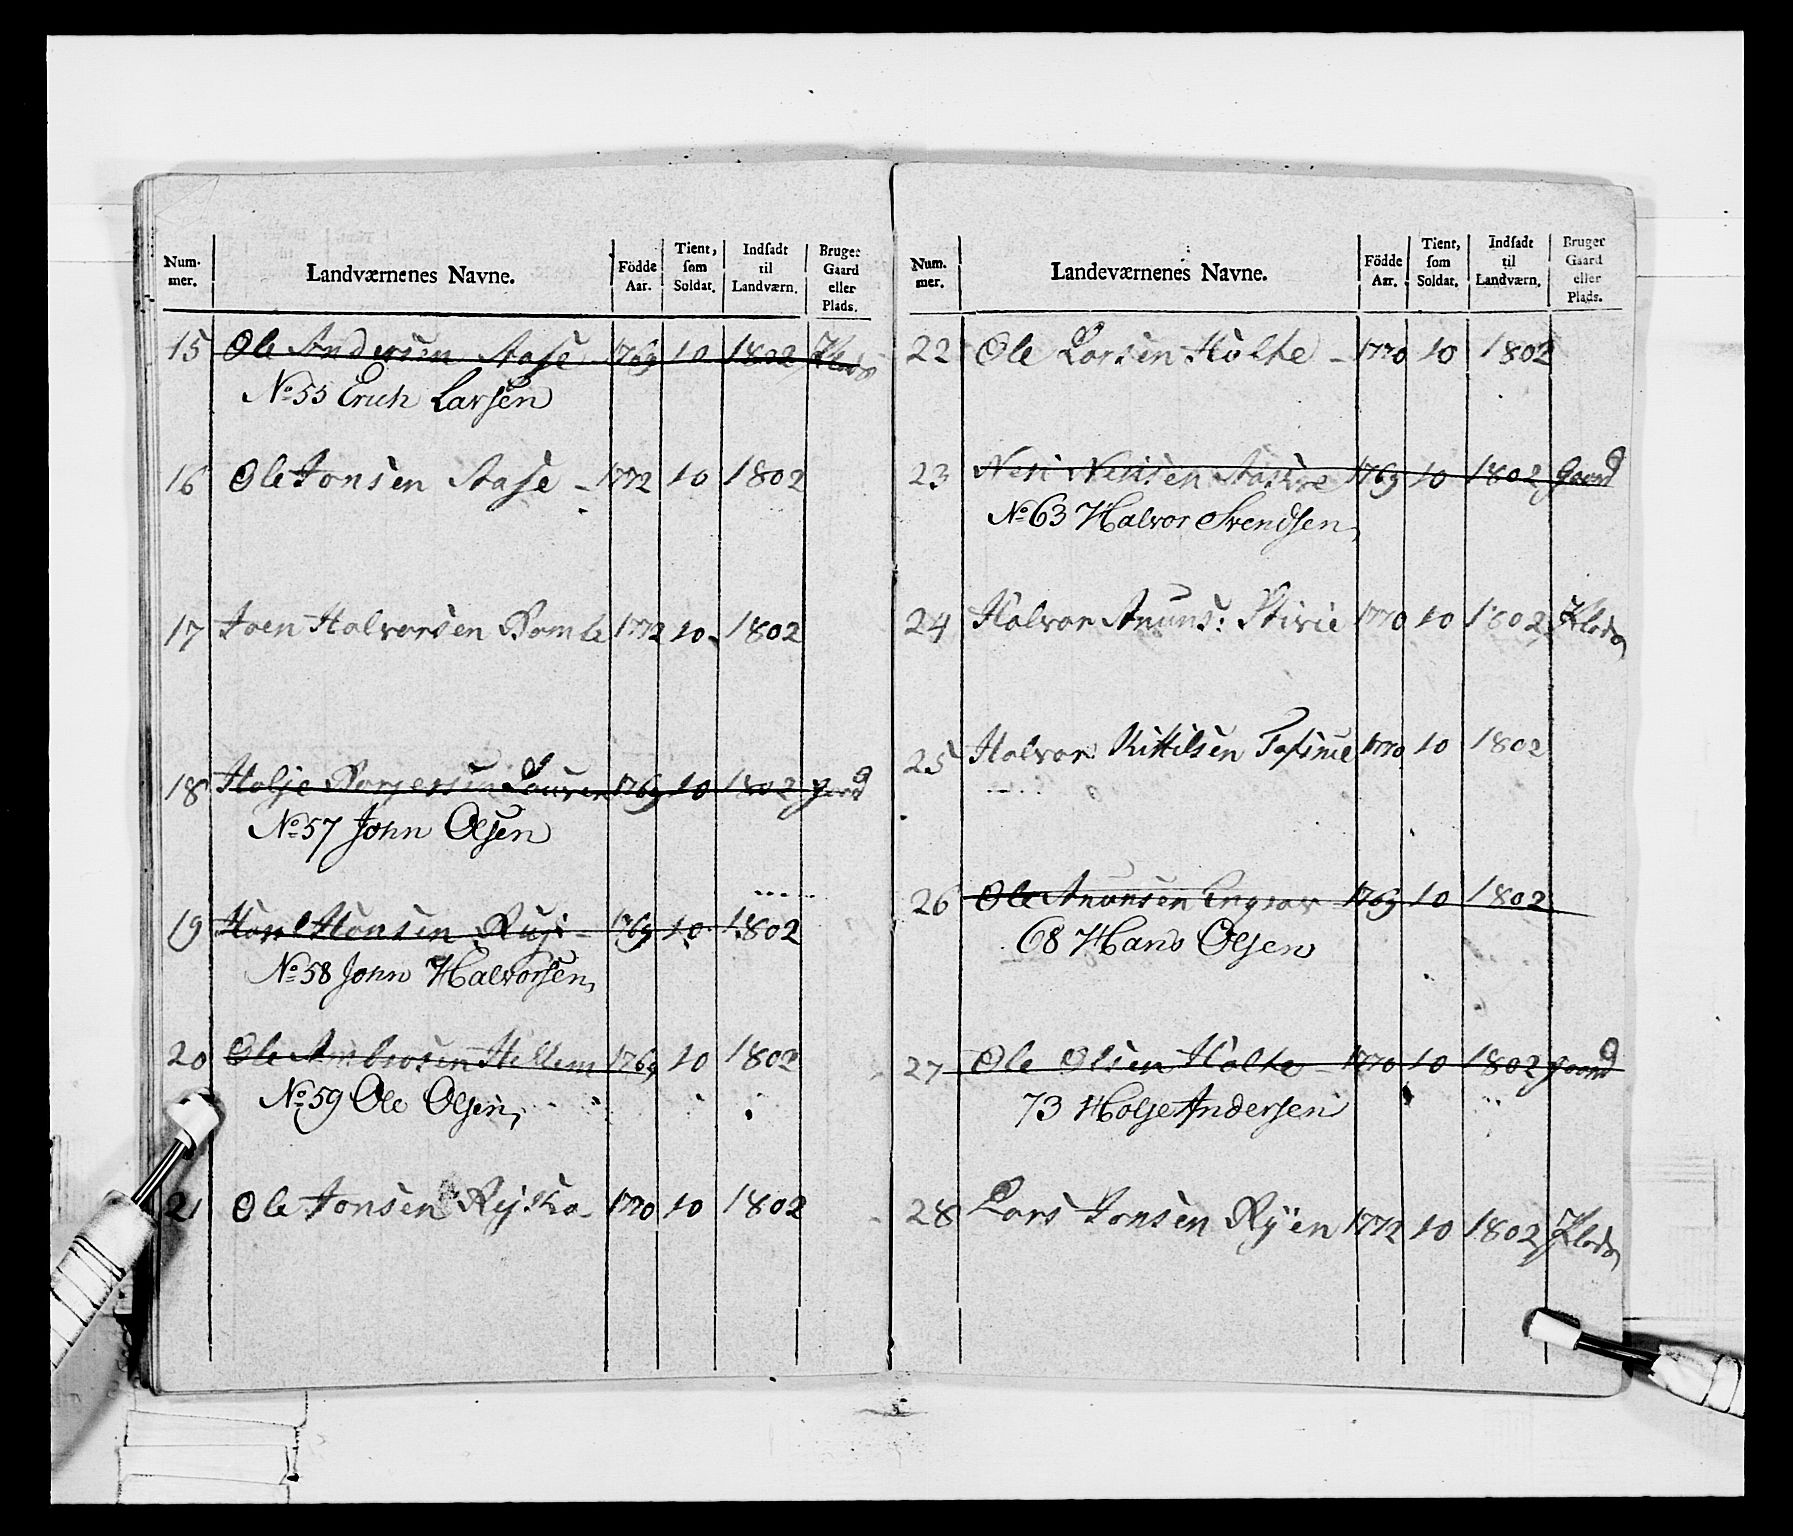 Num-mer. Landværnenes Navne. Födde Aar. Tient, som Soldat. Indsadt til Landværn. Bruger Gaard eller Plads.
15 Ole Andersen Aase 1769 10 1802 Plads
No 55 Erich Larsen
16 Ole Jonsen Aase - 1772 10 1802
17 Joen Halvorsen Bomle 1772 10 1802
18 Holje 1769 10 1802 gaard
No 57 John Olsen
19 Hansen 1769 10 1802
No 58 John Halvorsen
20 Ole Ambrosen Hellem 1769 10 1802
No 59 Ole Olsen
21 Ole Jonsen 1770 10 1802
Num-mer. Landeværnenes Navne. Födde Aar. Tient, som Soldat. Indsadt til Landværn. Bruger Gaard eller Plads.
22 Ole Larsen Holte - 1770 10 1802
23 Neri Nerisen 1769 10 1802 Gaard
No 63 Halvor Svendsen
24 Halvor Anuns: 1770 10 1802 Plads
25 Halvor Kittilsen 1770 10 1802
26 Ole Anunsen 1769 10 1802
68 Hans Olsen
27 Ole Olsen Holte 1770 10 1802 gaard
73 Holje Andersen
28 Lars Jonsen Ryen 1772 10 1802 Plads